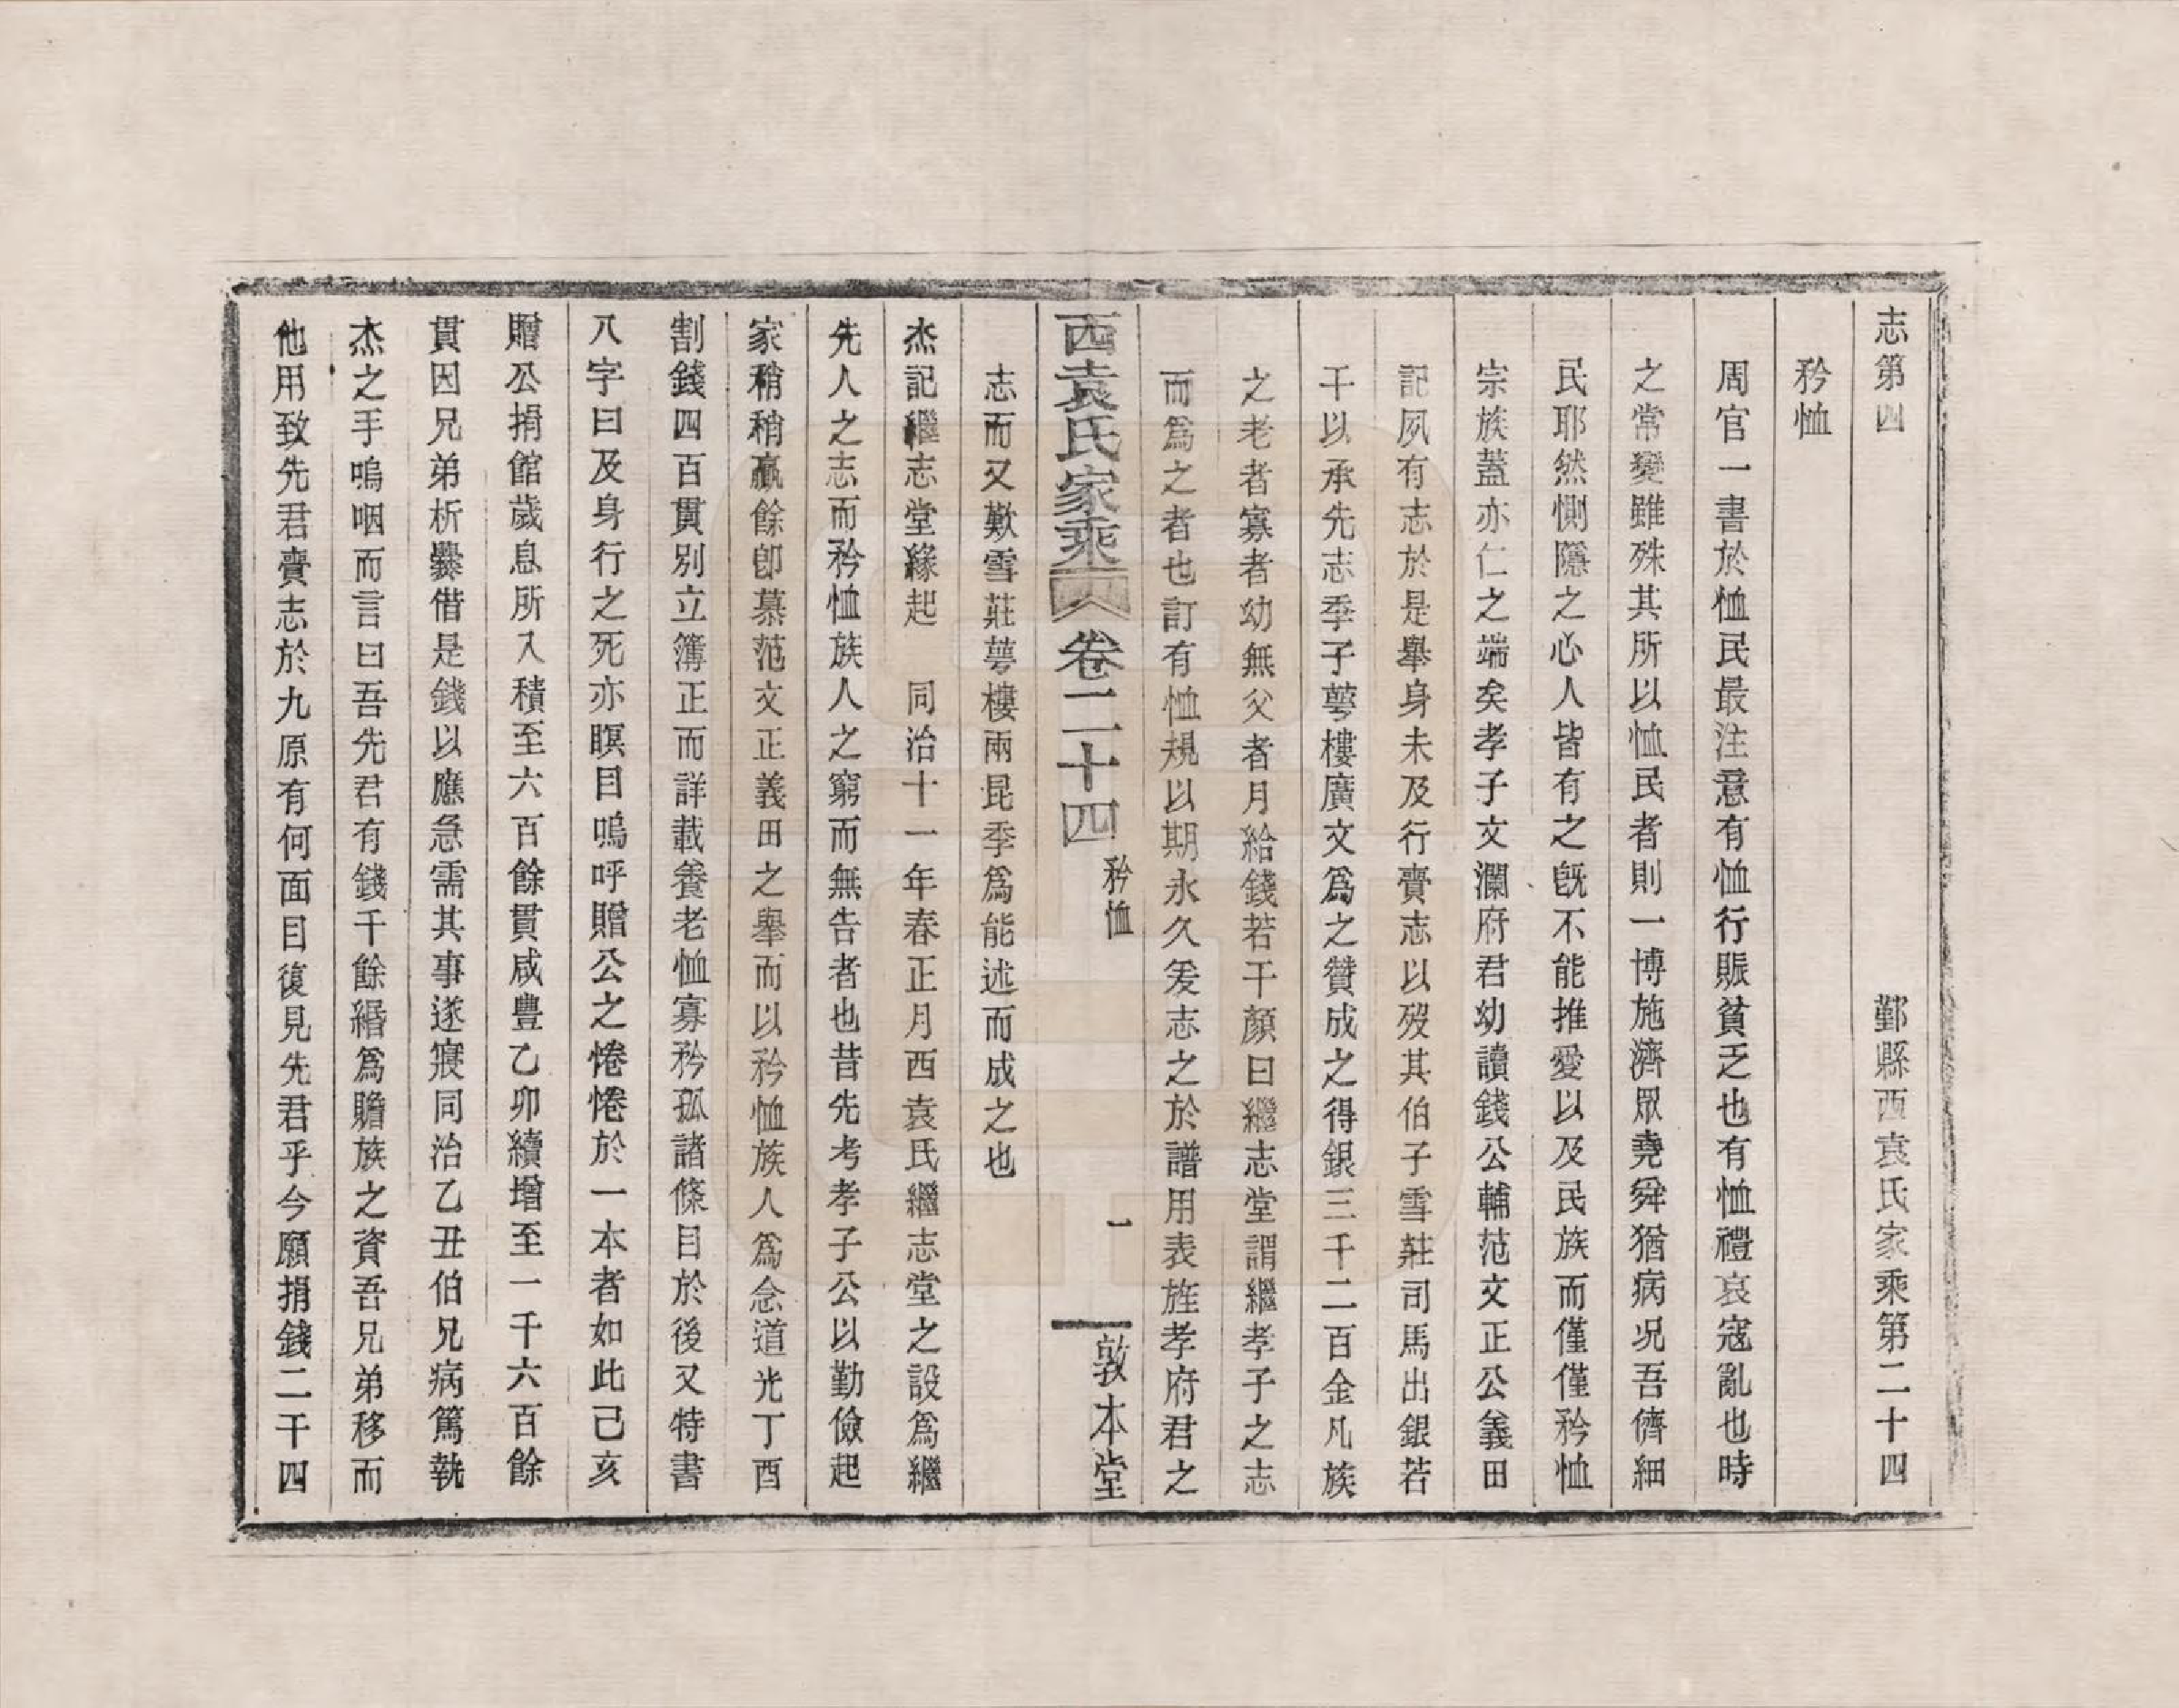 志第四　鄞縣西袁氏家乘第二十四
矜恤
周官一書於恤民最注意有恤行賑貧乏也有恤禮哀寇亂也時
之常變雖殊其所以恤民者則一博施濟眾堯舜猶病况吾儕細
民耶然惻隱之心人皆有之旣不能推愛以及民族而僅僅矜恤
宗族蓋亦仁之端矣孝子文瀾府君幼讀錢公輔范文正公義田
記夙有志於是舉身未及行賫志以歿其伯子雪莊司馬出銀若
干以承先志季子萼樓廣文爲之贊成之得銀三千二百金凡族
之老者寡者幼無父者月給錢若干顏曰繼志堂謂繼孝子之志
而爲之者也訂有恤規以期永久爰志之於譜用表旌孝府君之
西袁氏家乘　卷二十四　矜恤　一　敦本堂
志而又歎雪莊萼樓兩昆季爲能述而成之也
杰記繼志堂緣起　同治十一年春正月西袁氏繼志堂之設爲繼
先人之志而矜恤族人之窮而無告者也昔先考孝子公以勤儉起
家稍稍贏餘卽慕范文正義田之舉而以矜恤族人爲念道光丁酉
割錢四百貫別立簿正而詳載養老恤寡矜孤諸條目於後又特書
八字曰及身行之死亦瞑目嗚呼贈公之惓惓於一本者如此己亥
贈公捐館歲息所入積至六百餘貫咸豐乙卯續增至一千六百餘
貫因兄弟析爨借是錢以應急需其事遂寢同治乙丑伯兄病篤執
杰之手嗚咽而言曰吾先君有錢千餘緡爲贍族之資吾兄弟移而
他用致先君賫志於九原有何面目復見先君乎今願捐錢二千四